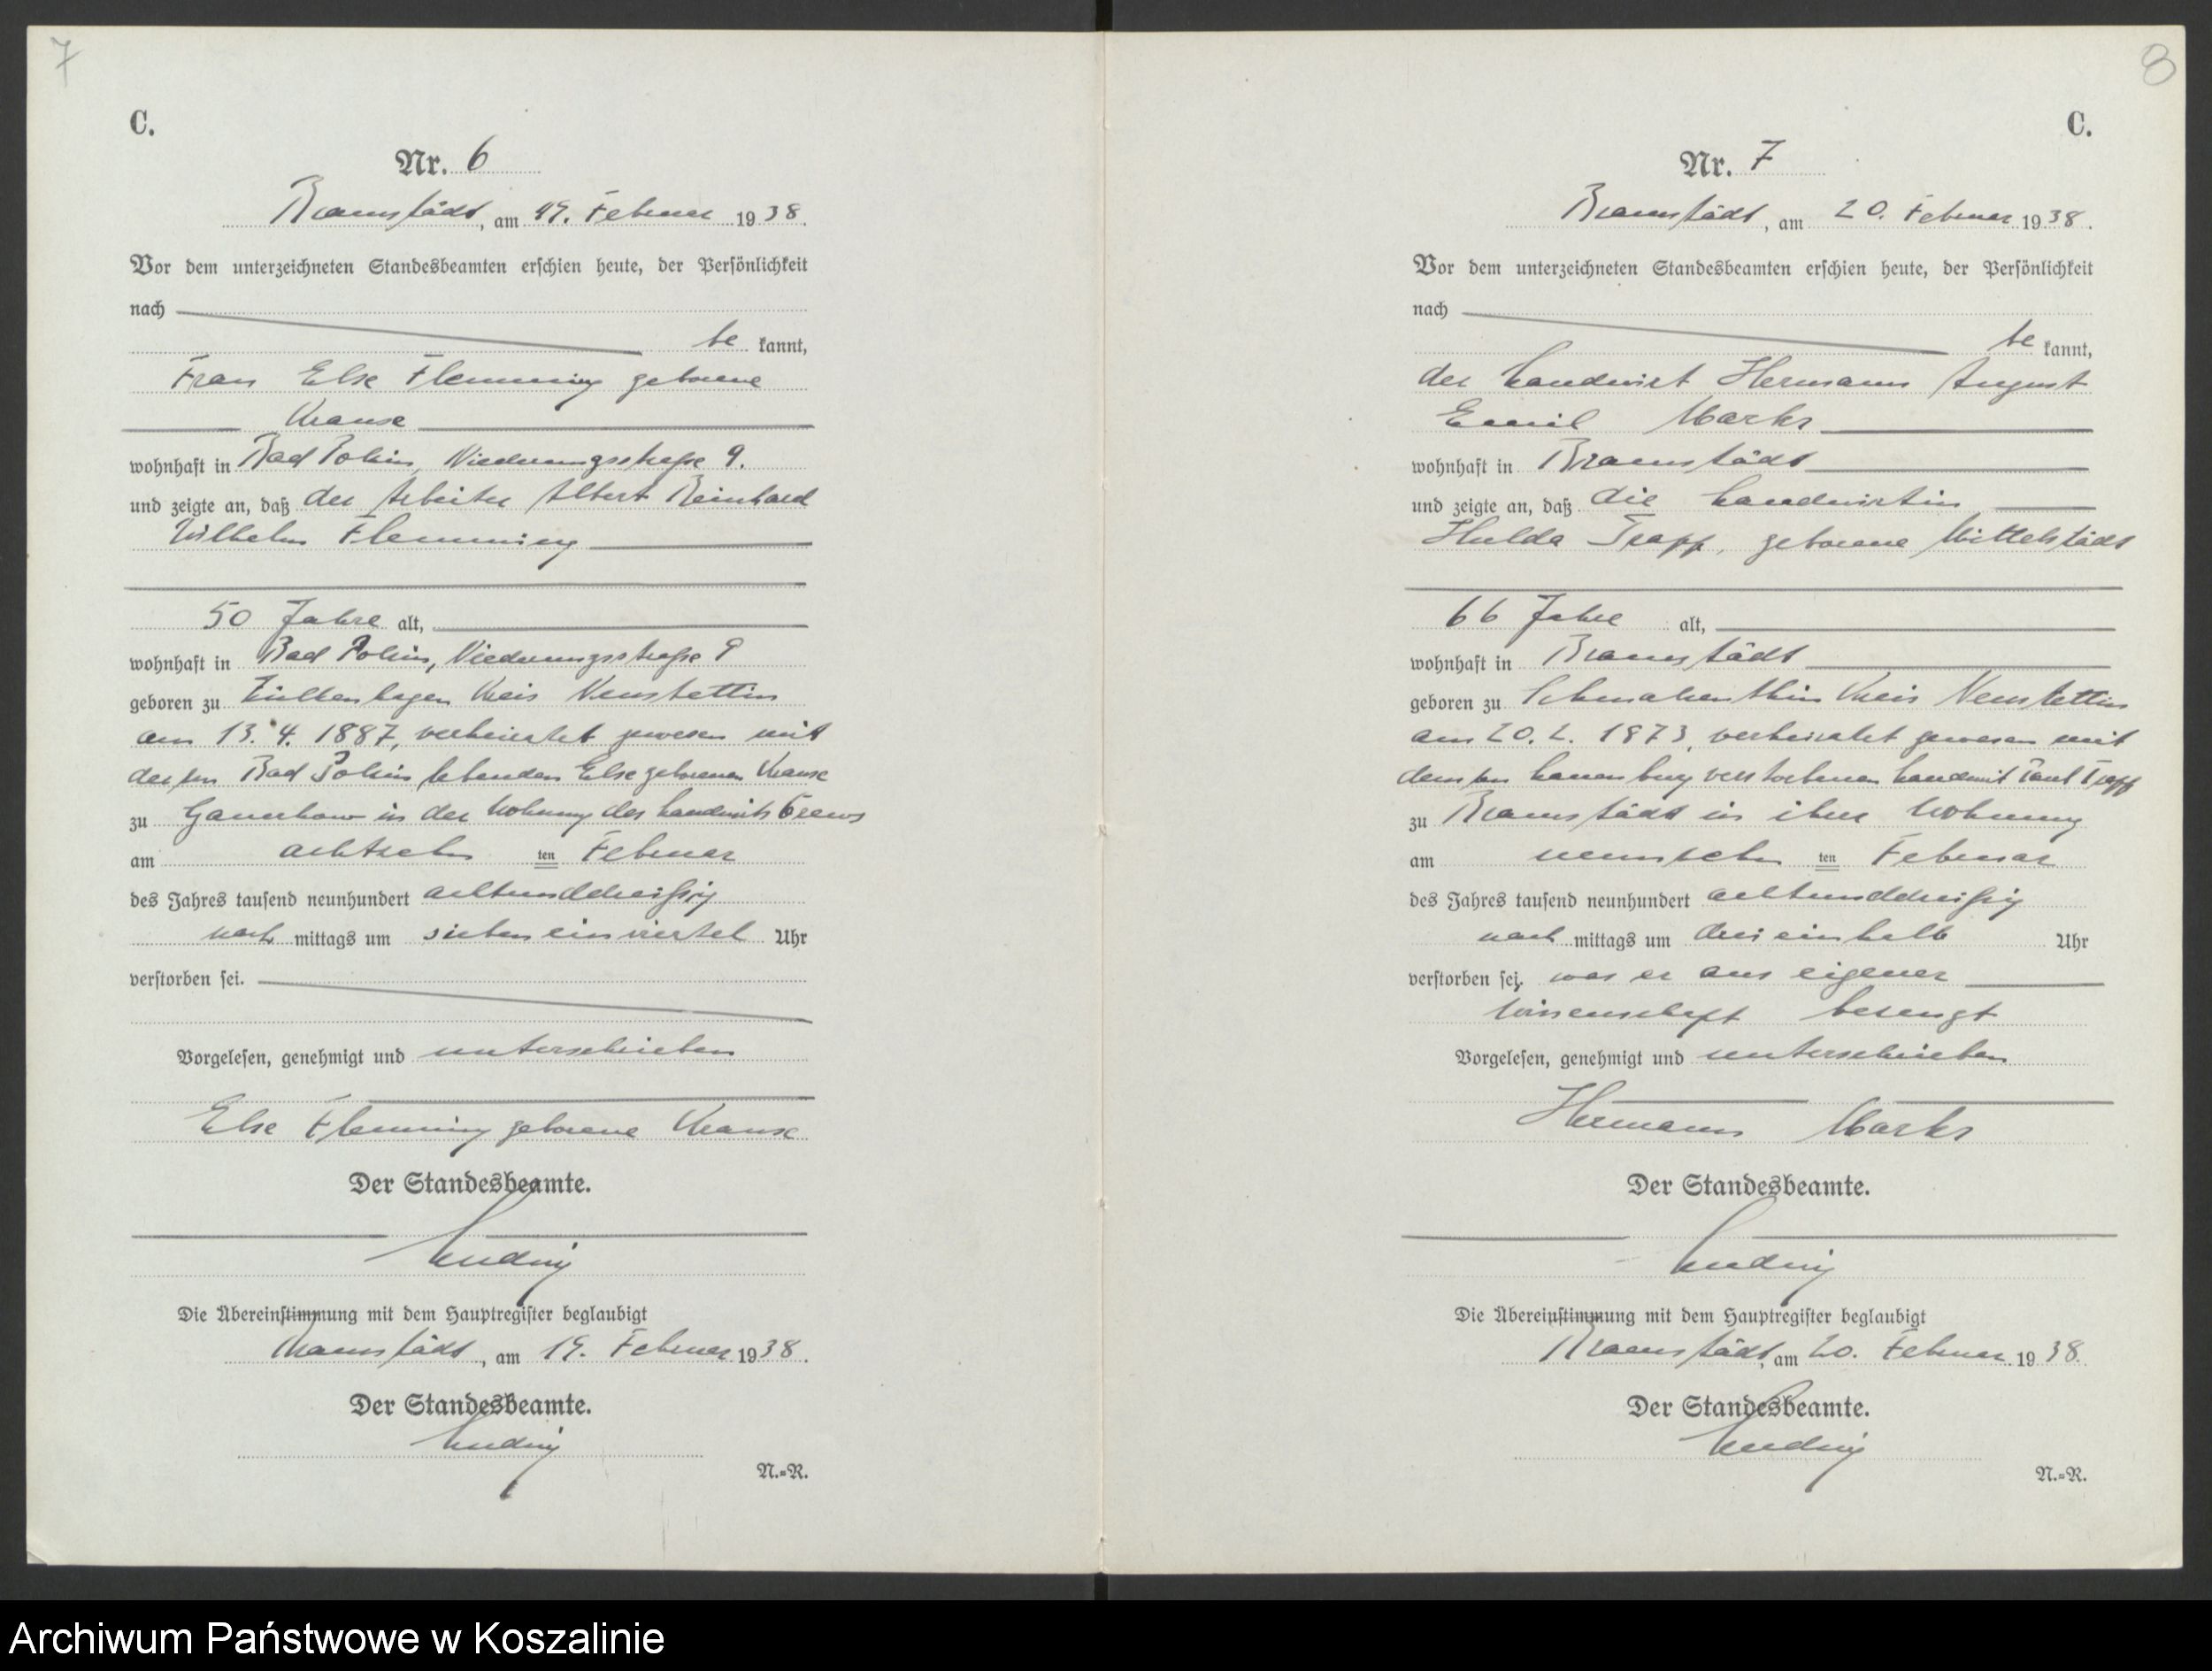 7
C.
Nr. 6
Bramstädt, am 19. Februar 1938.
Vor dem unterzeichneten Standesbeamten erschien heute, der Persönlichkeit
nach
be kannt,
Frau Else Flemming geborene
Krause
wohnhaft in Bad Polzin, Niederungsstraße 9.
und zeigte an, daß der Arbeiter Albert Reinhard
Wilhelm Flemming
50 Jahre alt,
wohnhaft in Bad Polzin, Niederungsstraße 9
geboren zu Zülkenhagen Kreis Neustettin
am 13. 4. 1887, verheiratet gewesen mit
der in Bad Polzin lebenden Else geborenen Krause
zu Gauerkow in der Wohnung des Landwirts
am achtzehn ten Februar
des Jahres tausend neunhundert achtunddreißig
nach mittags um sieben einviertel Uhr
verstorben sei.
Vorgelesen, genehmigt und unterschrieben
Else Flemming geborene Krause
Der Standesbeamte.
Die Übereinstimmung mit dem Hauptregister beglaubigt
Bramstädt, am 19. Februar 1938.
Der Standesbeamte.
N.=R.
8
C.
Nr. 7
Bramstädt, am 20. Februar 1938.
Vor dem unterzeichneten Standesbeamten erschien heute, der Persönlichkeit
nach
be kannt,
der Landwirt Hermann August
Emil Marks
wohnhaft in Bramstädt
und zeigte an, daß die Landwirtin
Hulda Trapp, geborene Mittelstädt
66 Jahre alt,
wohnhaft in Bramstädt
geboren zu Schmalzenthin Kreis Neustettin
am 20. 2. 1873, verheiratet gewesen mit
dem in Lauenburg verstorbenen Landwirt Paul Trapp
zu Bramstädt in ihrer Wohnung
am neunzehn ten Februar
des Jahres tausend neunhundert achtunddreißig
nach mittags um drei einhalb Uhr
verstorben sei, was er aus eigener
Wissenschaft bezeugt
Vorgelesen, genehmigt und unterschrieben
Hermann Marks
Der Standesbeamte.
Die Übereinstimmung mit dem Hauptregister beglaubigt
Bramstädt, am 20. Februar 1938.
Der Standesbeamte.
N.=R.
Archiwum Państwowe w Koszalinie